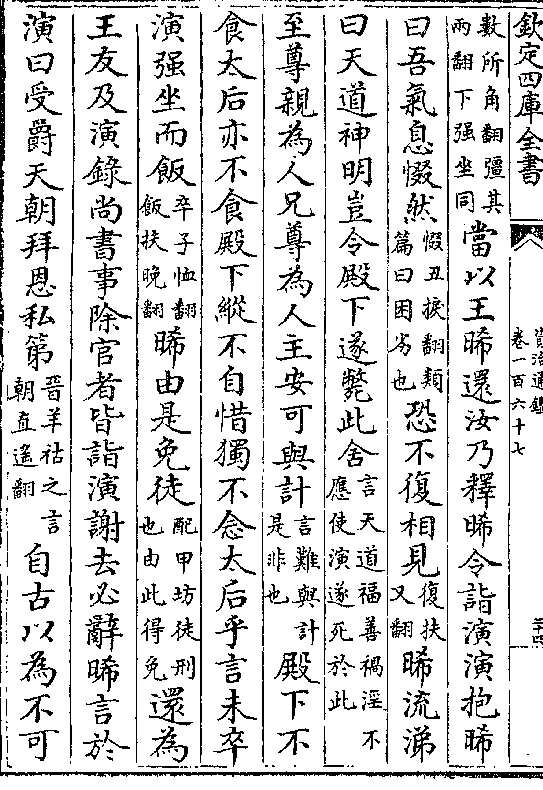 欽定四庫全書
資治通鑑
卷一百六十七
數所角翻彊其兩翻下强坐同當以王晞還汝乃釋晞令詣演演抱晞
曰吾氣息惙然惙丑捩翻類篇曰困劣也恐不復相見復扶又翻晞流涕
曰天道神明豈令殿下遂斃此舍言天道福善禍淫不應使演遂死於此
至尊親為人兄尊為人主安可與計言難與計是非也殿下不
食太后亦不食殿下縱不自惜獨不念太后乎言未卒
演强坐而飯卒子恤翻飯扶晚翻晞由是免徒配甲坊徒刑也由此得免還為
王友及演錄尚書事除官者皆詣演謝去必辭晞言於
演曰受爵天朝拜恩私第晉羊祜之言朝直遥翻自古以為不可